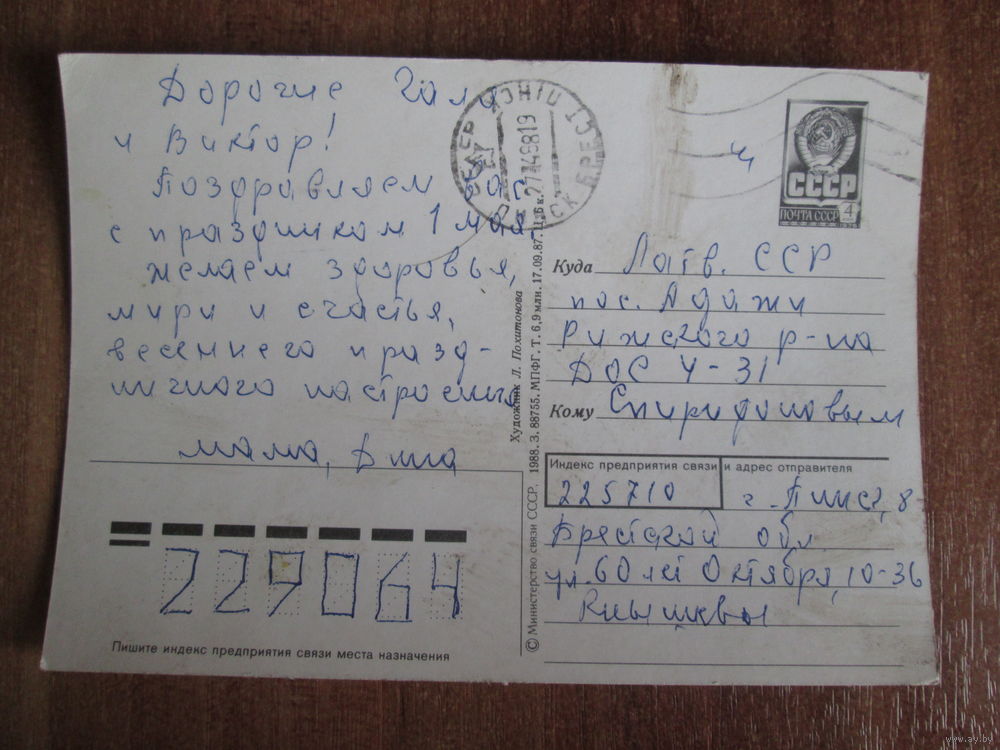 Дорогие Галя
и Виктор!
Поздравляем вас
с праздником 1 мая.
желаем здоровья,
мира и счастья,
весеннего празд-
ничного настроения
мама,
229064
Пишите индекс предприятия связи места назначения
© Министерство связи СССР. 1988. З. 88755. МПФГ. Т. 6,9 млн. 17.09.87. Ц. 6 к.
Художник Л. Похитонова
СССР
ПОЧТА СССР 4
Куда Латв. ССР
пос. Адажи
Рижского р-на
ДОС 4-31
Кому Спиридоновым
Индекс предприятия связи и адрес отправителя
225710 г. Пинск, 8
Брестской обл
ул. 60 лет Октября, 10-36
www.ay.by